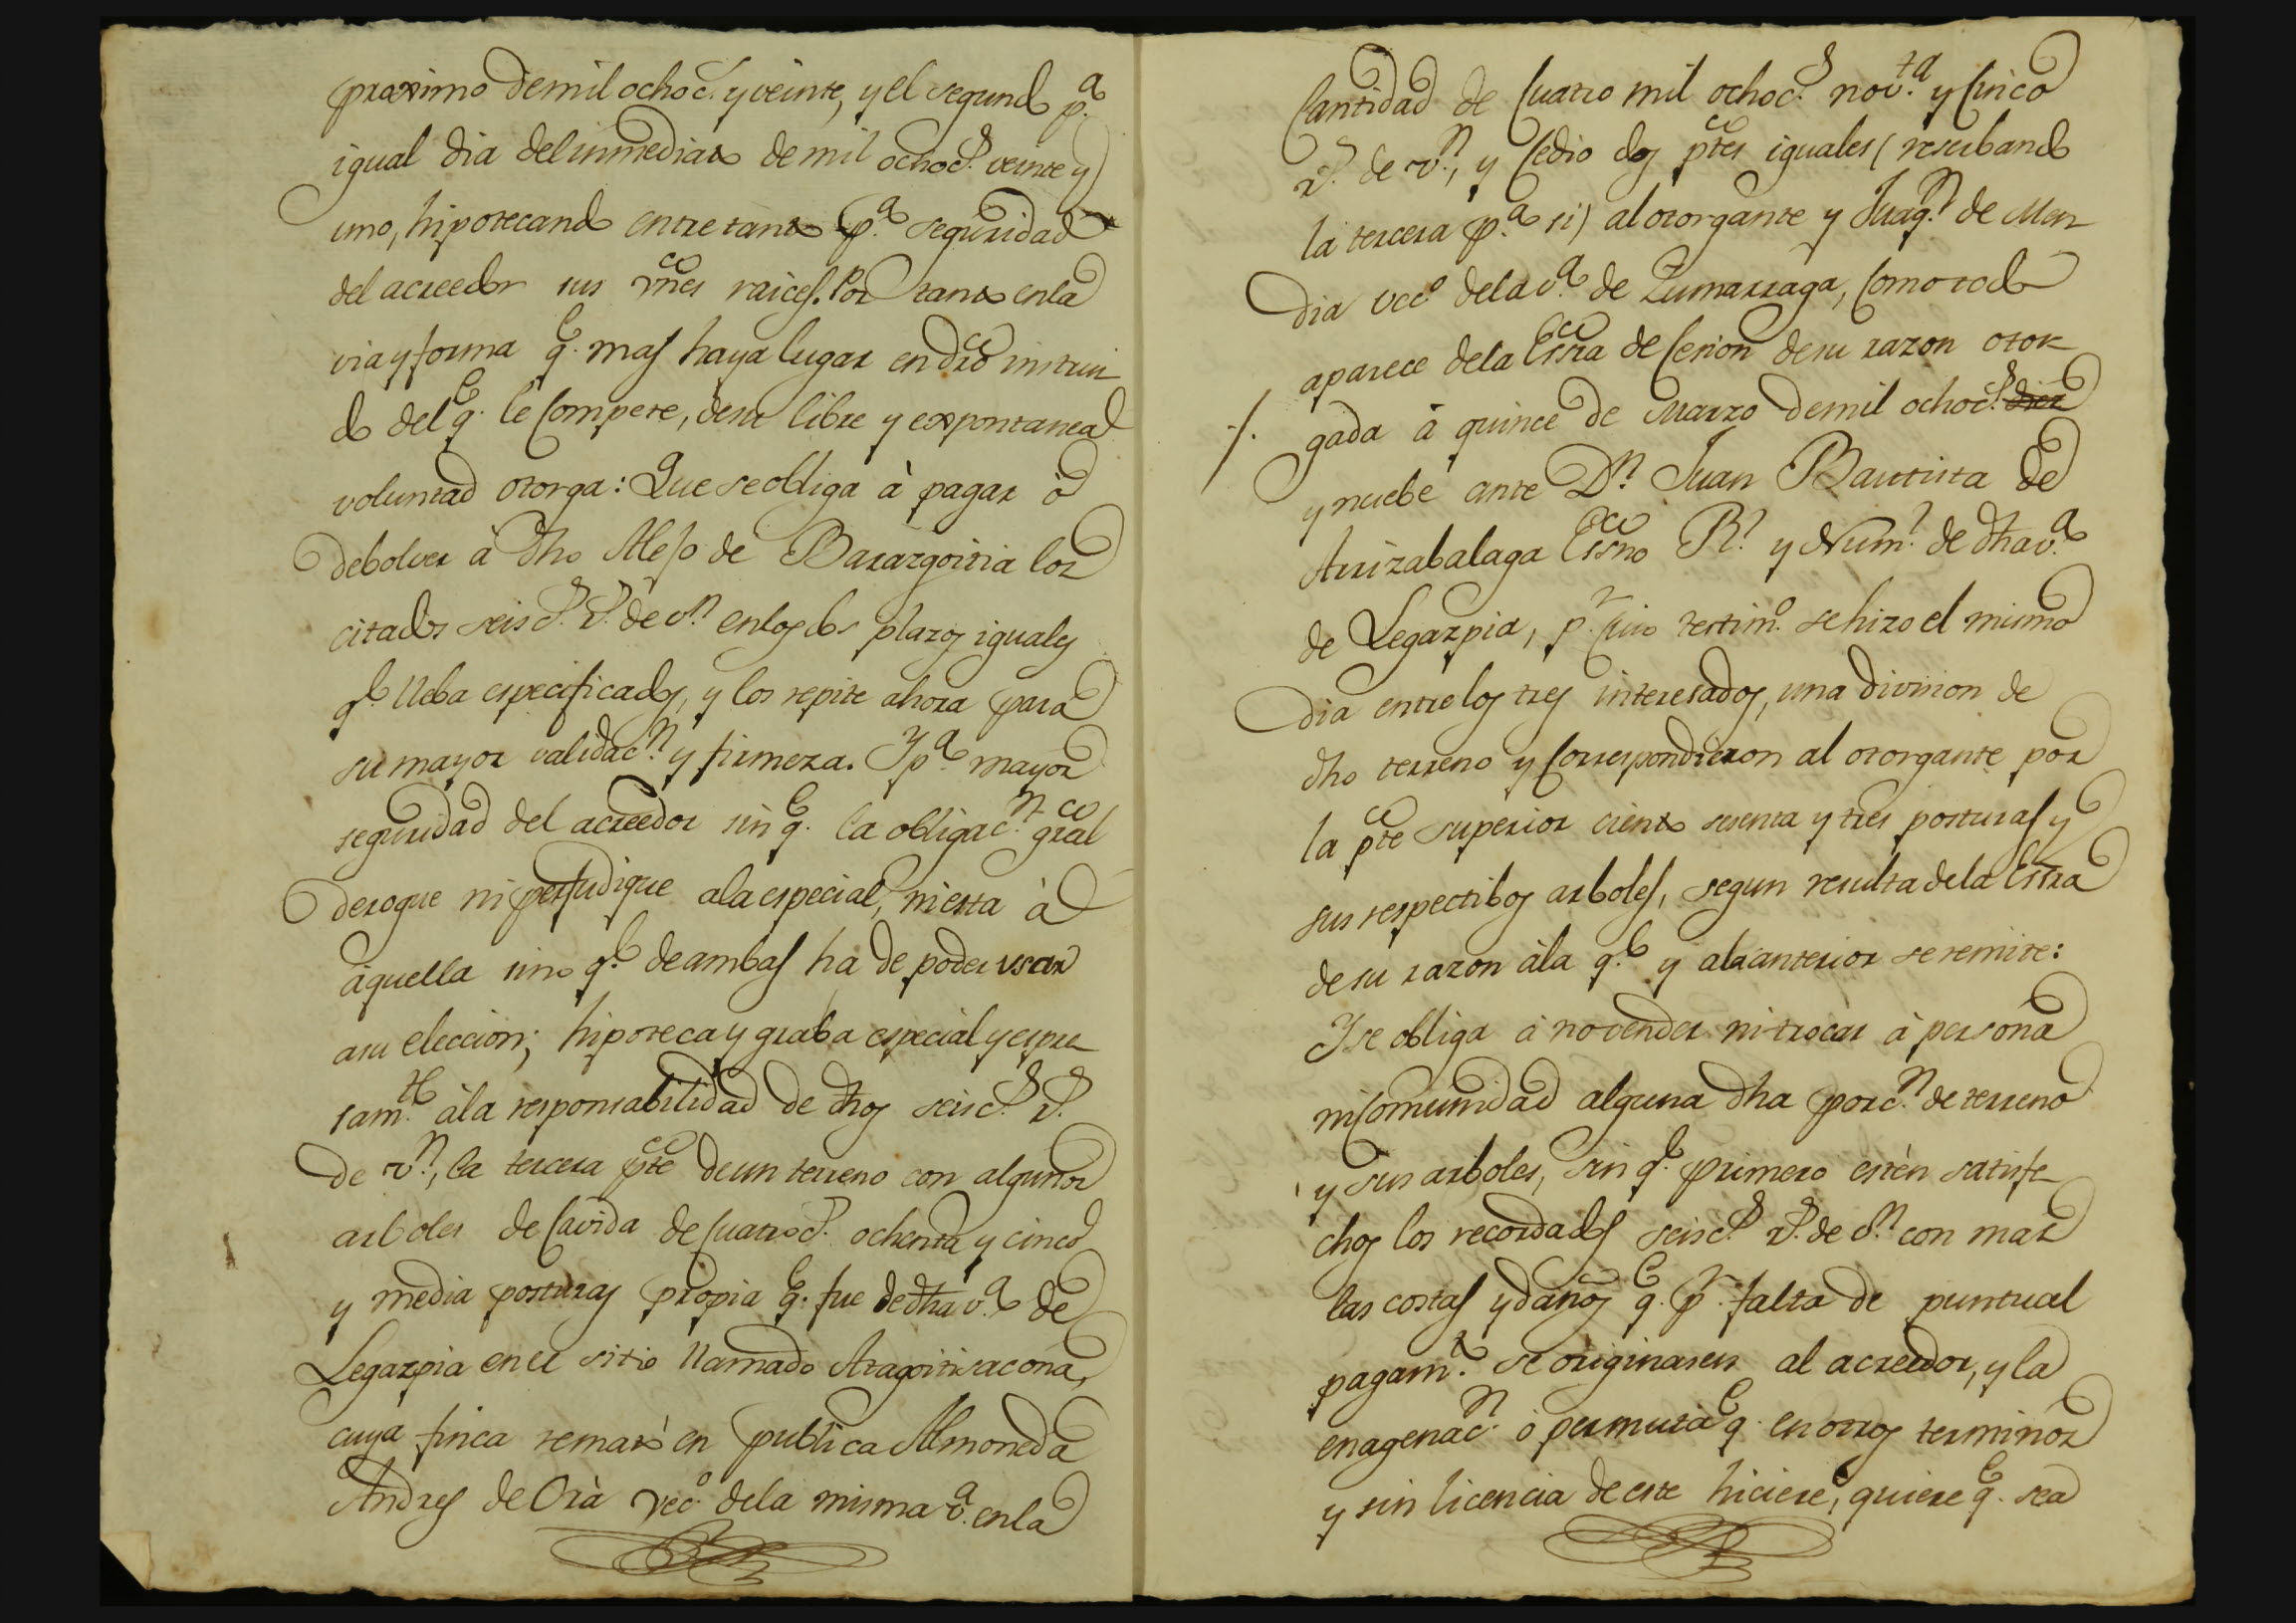 proximo de mil ochoc.s y veinte, y el segundo p.a
igual dia del inmediato de mil ochoc.s veinte y
uno, hipotecando entretanto p.a seguridad
del acreedor sus vnes raices. Por tanto en la
via y forma q.e mas haya lugar en dro instrui-
do del q.e le compete, de su libre y expontanea
voluntad otorga: Que se obliga à pagar ò
debolver à dho Alejo de Barazgoitia los
citados seisc.s r.s de v.n en los dos plazos iguales
q.e lleba especificados, y los repite ahora para
su mayor validac.n y firmeza. Y p.a mayor
seguridad del acreedor sin q.e la obligac.n gral
derogue ni perjudique a la especial, ni esta à
aquella sino q.e de ambas ha de poder usar
a su eleccion; hipoteca y graba especial y espre-
sam.te à la responsabilidad de dhos seisc.s r.s
de v.n, la tercera pte de un terreno con algunos
arboles de cavida de cuatroc.s ochenta y cinco
y media posturas propia q.e fue de dha v.a de
Legazpia en el sitio llamado Aragoitisacona,
cuya finca remató en publica Almoneda
Andres de Orà vec.o de la misma v.a en la
Cantidad de Cuatro mil ochoc.s nov.ta y Cinco
r.s de v.n, y cedio dos ptes iguales (reserbando
la tercera p.a si) al otorgante y Juaq.n de Men-
dia vec.o de la v.a de Zumarraga, como todo
aparece de la Essra de Cesion de su razon otor-
/. gada à quince de Marzo de mil ochoc.s diez
y nuebe ante D.n Juan Bautista de
Arrizabalaga Essno R.l y Num.l de dha v.a
de Legazpia, p.r cuio testim.o se hizo el mismo
dia entre los tres interesados, una division de
dho terreno y correspondieron al otorgante por
la pte superior ciento sesenta y tres posturas y
sus respectibos arboles, segun resulta de la Essra
de su razon à la q.e y a la anterior se remite:
Y se obliga à no vender ni trocar à persona
ni comunidad alguna dha porc.n de terreno
y sus arboles, sin q.e primero estèn satisfe-
chos los recordados seisc.s r.s de v.n con mas
las costas y daños q.e p.r falta de puntual
pagam.to se originasen al acreedor, y la
enagenac.n ò permuta q.e en otros terminos
y sin licencia de este hiciere, quiere q.e sea